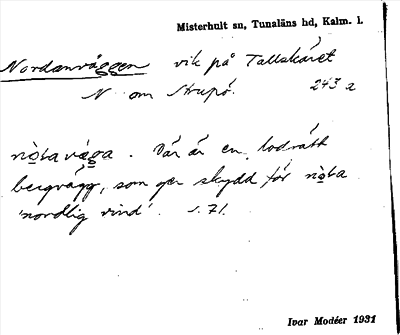 Misterhult sn, Tunaläns hd, Kalm. l.
Nordanväggen vik på Tallskäret
N om Strupö. 243 a
nọ̀tavæ̣ga. Där är en lodrätt
bergvägg, som ger skydd för nọ̀ta
'nordlig vind'. s. 71.
Ivar Modéer 1931